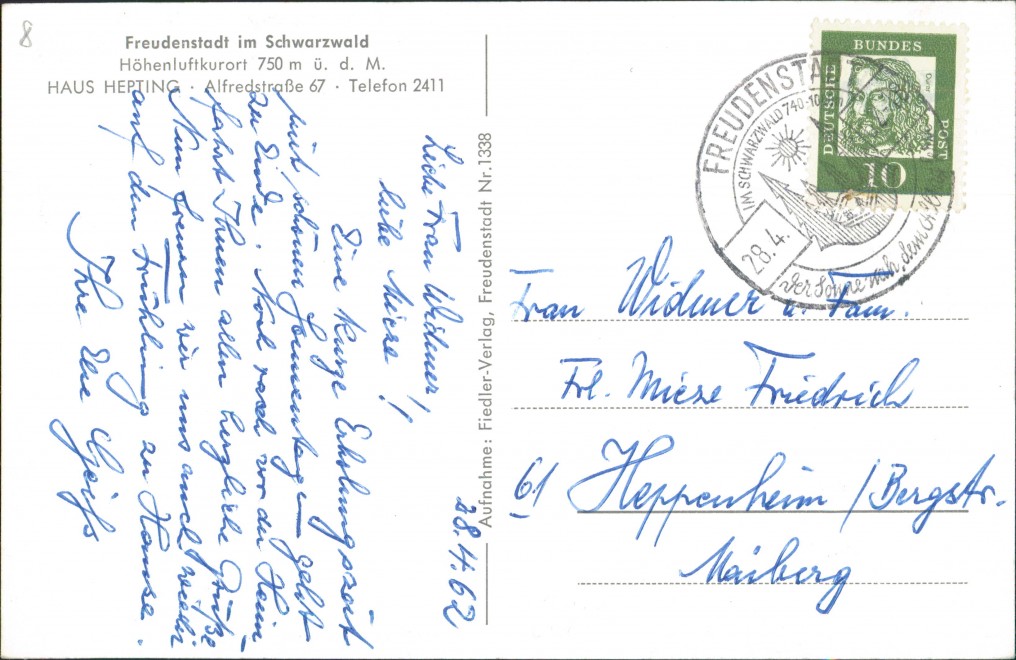 8
Freudenstadt im Schwarzwald
Höhenluftkurort 750 m ü. d. M.
HAUS HEPTING · Alfredstraße 67 · Telefon 2411
28.4.62
Liebe Frau Widmer!,
liebe Mieze!
Eine kurze Erholungszeit
mit schönen Sonnentagen geht
zu Ende. Noch rasch vor der Heim
fahrt Ihnen allen herzliche Grüße
Nun freuen wir uns auch wieder
auf den Frühling zu Hause.
Ihre Else
Aufnahme: Fiedler-Verlag, Freudenstadt Nr.1338
FREUDENSTADT
IM SCHWARZWALD 740-10
28.4.
Der Sonne nah, dem
DEUTSCHE
BUNDES
POST
Dürer
10
Frau Widmer u. Fam.
Frl. Mieze Friedrich
61 Heppenheim / Bergstr.
Maiberg